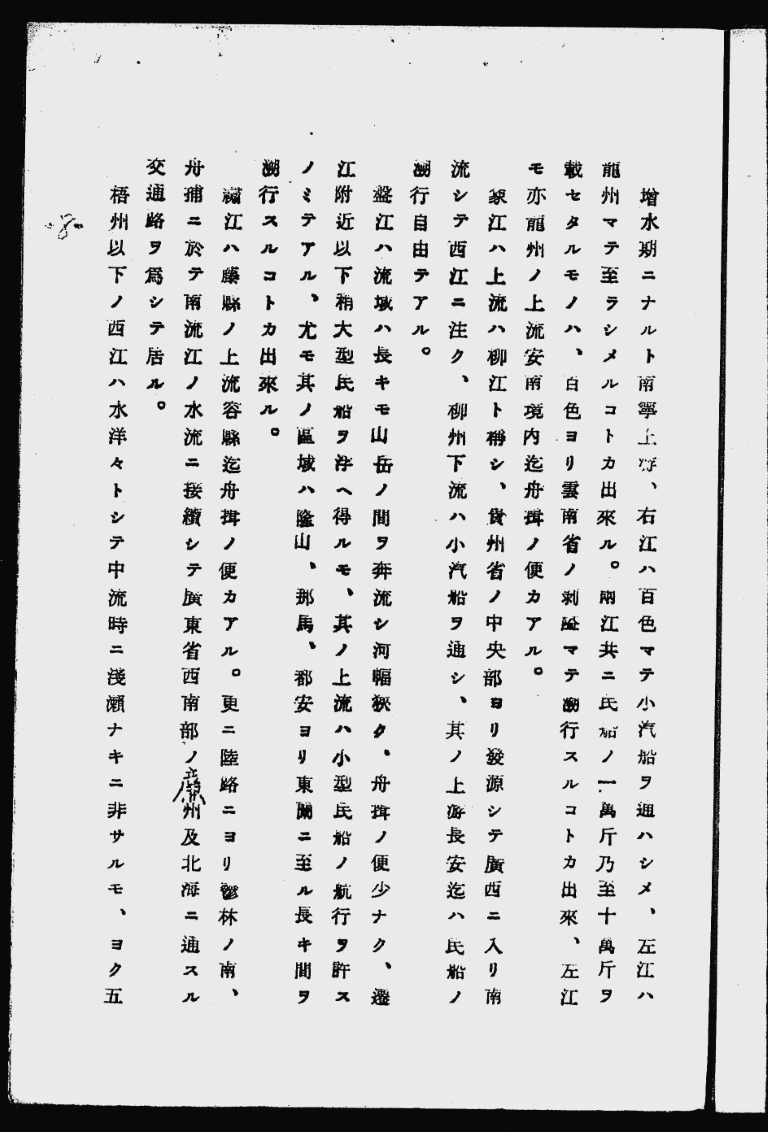 增水期ニナルト南寧上游、右江ハ百色マテ小汽船ヲ通ハシメ、左江ハ
龍州マテ至ラシメルコトカ出來ル。兩江共ニ民船ノ一萬斤乃至十萬斤ヲ
載セタルモノハ、百色ヨリ雲南省ノ剝隘マテ溯行スルコトカ出來、左江
モ亦龍州ノ上流安南境内迄舟揖ノ便カアル。
象江ハ上流ハ柳江ト稱シ、貴州省ノ中央部ヨリ發源シテ廣西ニ入リ南
流シテ西江ニ注ク、柳州下流ハ小汽船ヲ通シ、其ノ上游長安迄ハ民船ノ
溯行自由テアル。
盤江ハ流域ハ長キモ山岳ノ間ヲ奔流シ河幅狹ク、舟揖ノ便少ナク、遷
江附近以下稍大型民船ヲ浮ヘ得ルモ、其ノ上流ハ小型民船ノ航行ヲ許ス
ノミテアル、尤モ其ノ區域ハ隆山、那馬、都安ヨリ東蘭ニ至ル長キ間ヲ
溯行スルコトカ出來ル。
繡江ハ藤縣ノ上流容縣迄舟揖ノ便カアル。更ニ陸路ニヨリ鬱林ノ南、
舟埔ニ於テ南流江ノ水流ニ接續シテ廣東省西南部ノ廉州及北海ニ通スル
交通路ヲ爲シテ居ル。
梧州以下ノ西江ハ水洋々トシテ中流時ニ淺瀨ナキニ非サルモ、ヨク五